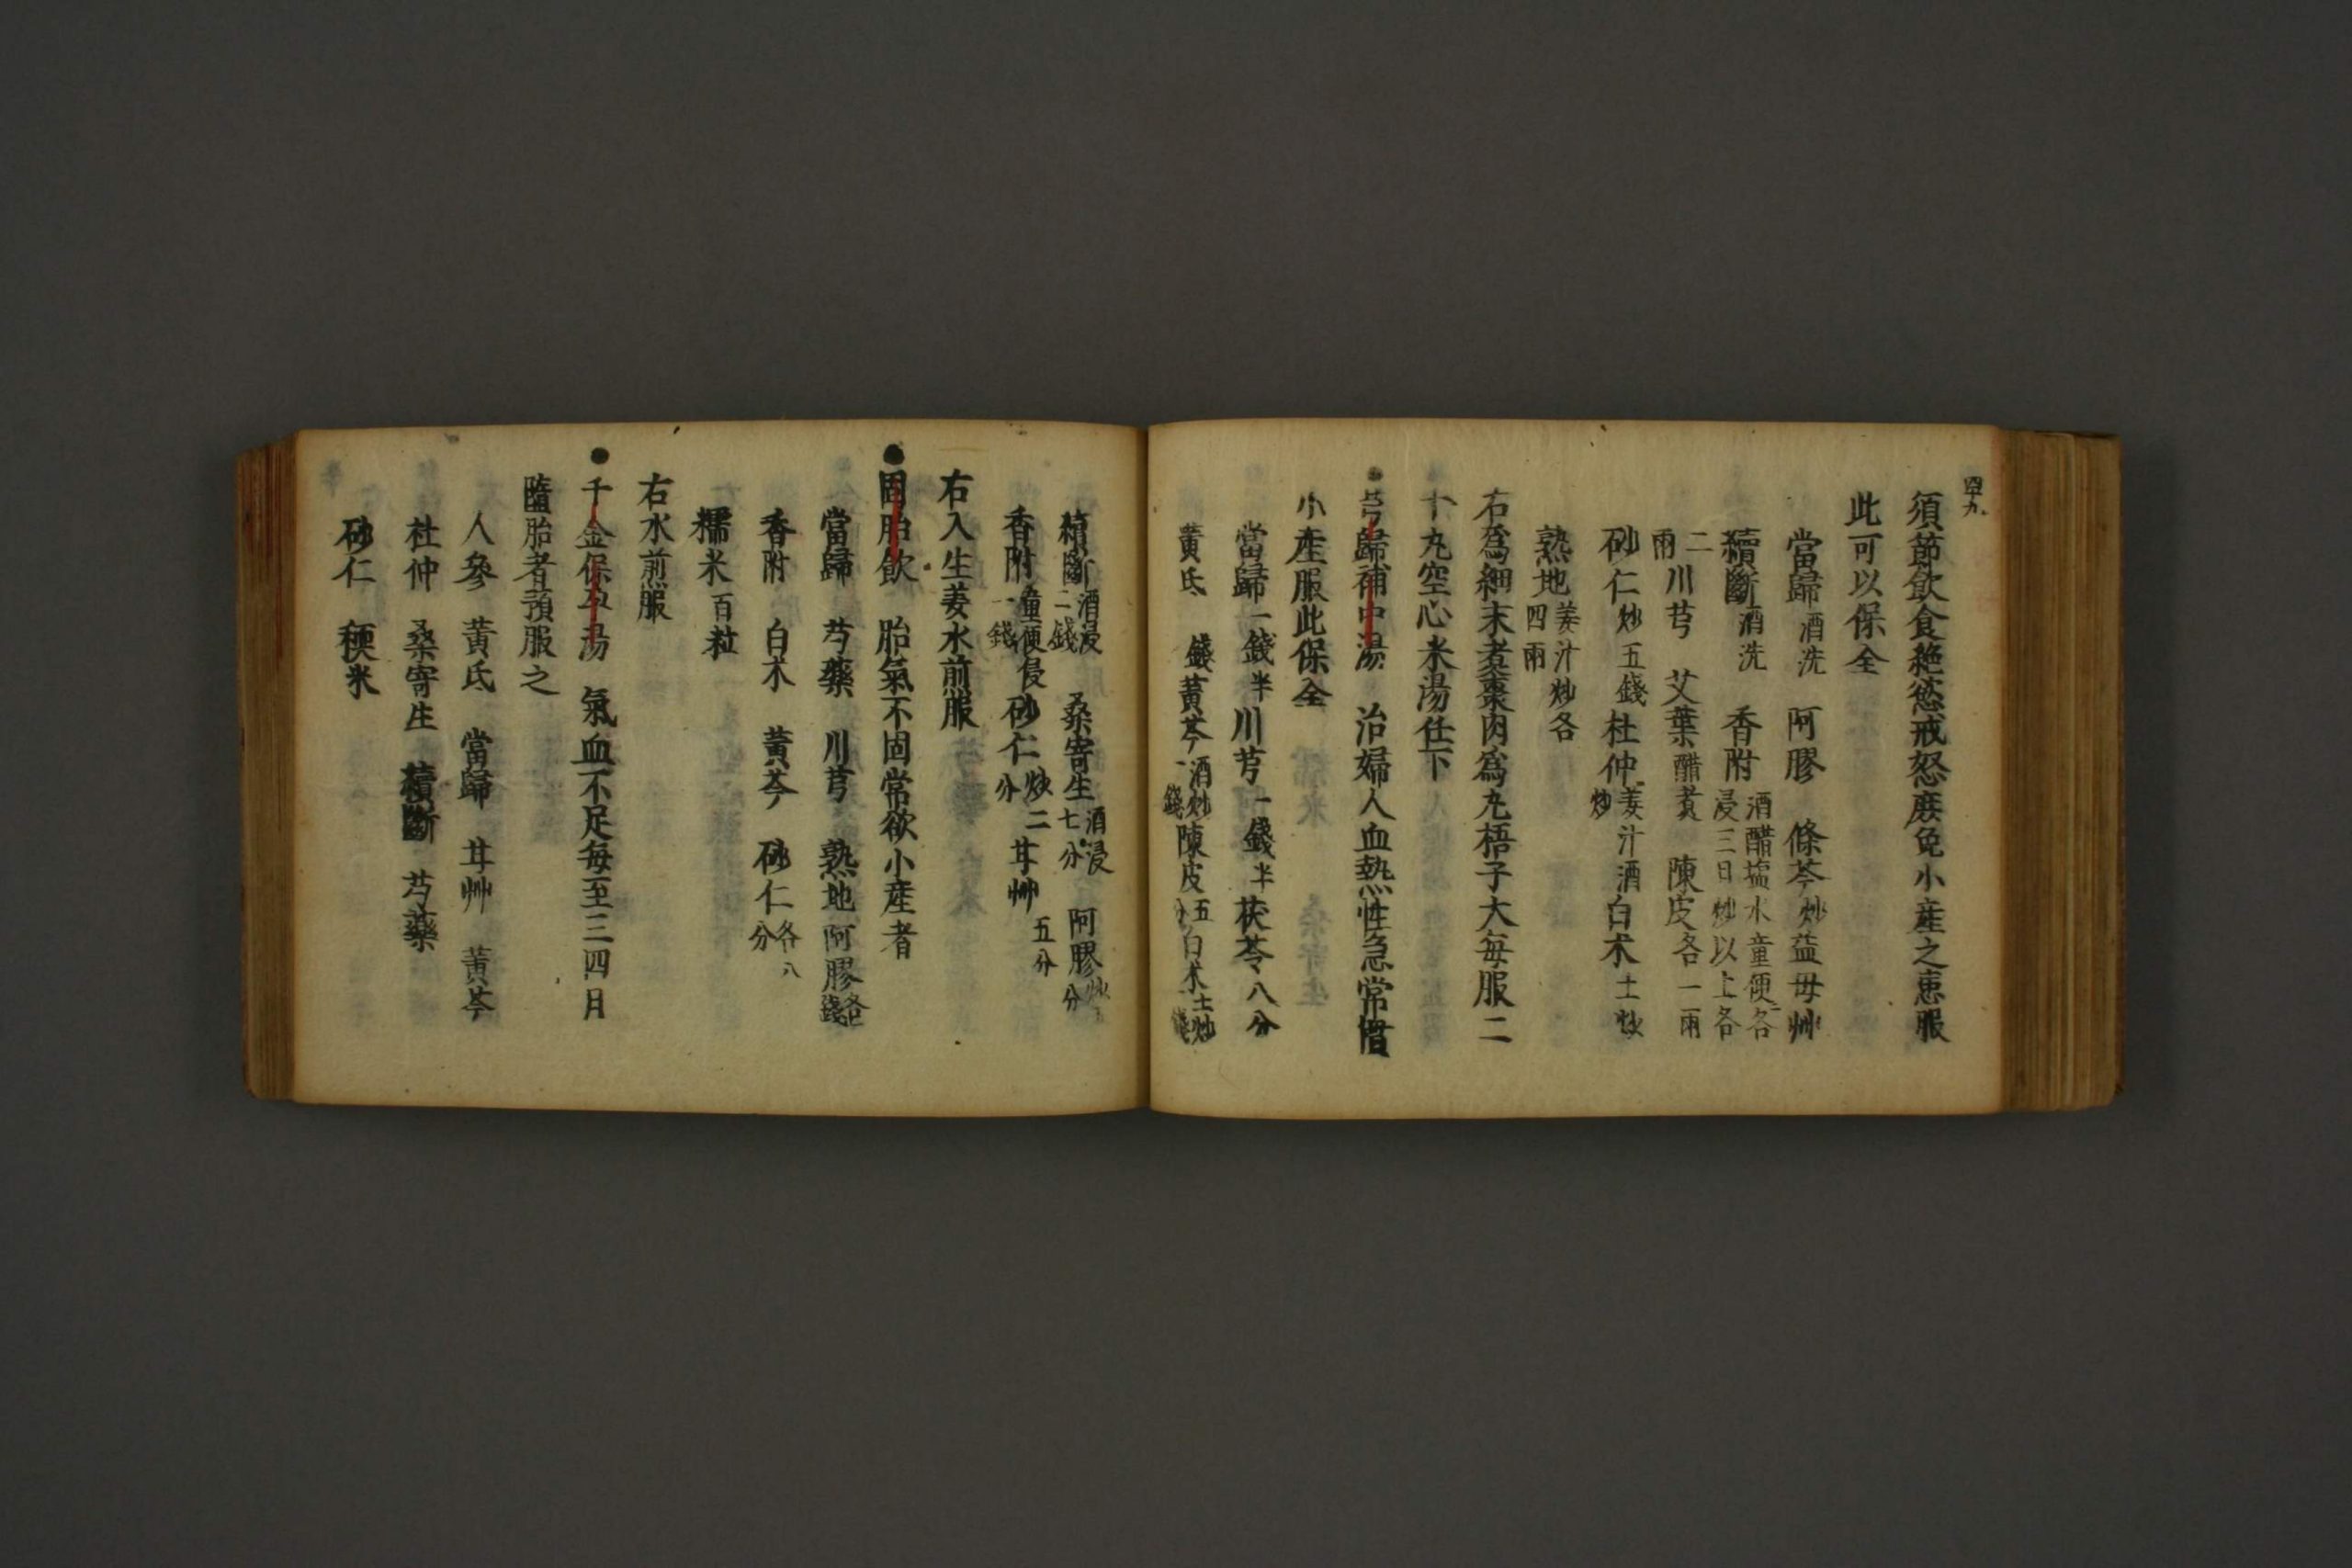 四十九
須節飲食絶慾戒怒庶免小産之恵服
此可以保全
當歸酒洗 阿膠 條芩炒益母艸
續斷酒洗 香附酒醋塩水童便各浸三日炒以上各
二兩川芎 艾葉醋煮 陳皮各一兩
砂仁炒五錢杜仲姜汁酒炒白术土炒
熟地姜汁炒各四兩
右為細末煮棗肉為丸梧子大每服二
十丸空心米湯任下
芎歸補中湯 治婦人血熱性急常慣
小産服此保全
當歸一錢半川芎一錢半茯苓八分
黄氏一錢黄芩酒炒一錢陳皮五分白术土炒錢
續斷酒浸二錢 桑寄生酒浸七分 阿膠炒分
香附童便侵一錢砂仁炒二分甘艸五分
右入生姜水煎服
固胎飲 胎氣不固常欲小産者
當歸 芍藥 川芎 熟地阿膠各錢
香附 白术 黄芩 砂仁各八分
糯米百粒
右水煎服
千金保孕湯 氣血不足每至三四月
隨胎者預服之
人參 黄氏 當歸 甘艸 黄芩
杜仲 桑寄生 續斷 芍藥
砂仁 稉米